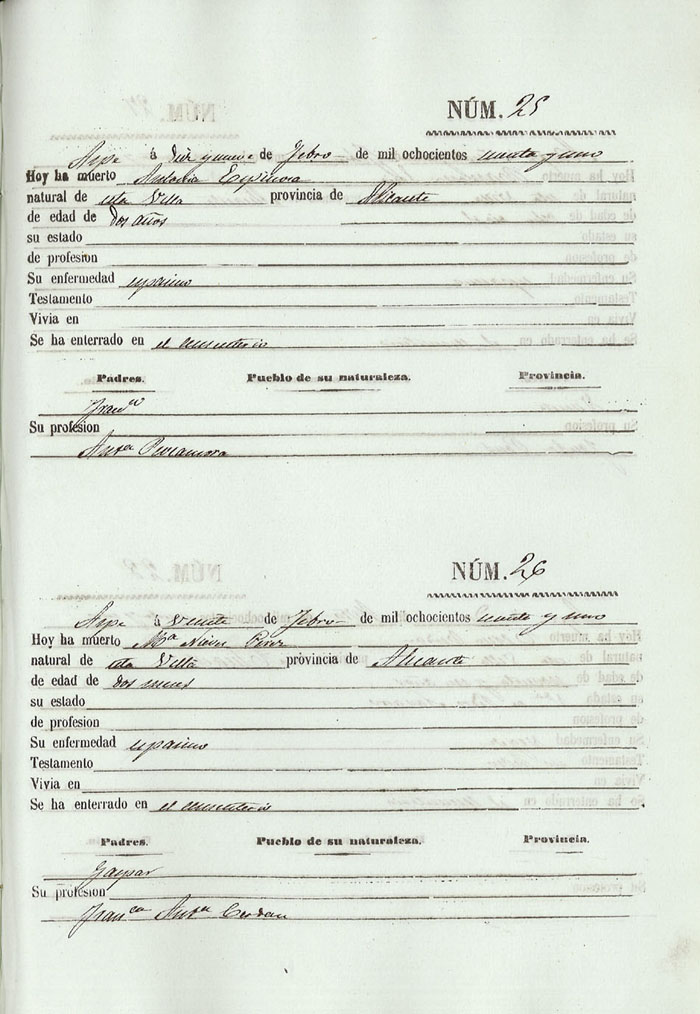 NÚM. 25
Aspe á diez y nueve de Febro de mil ochocientos sesenta y uno
Hoy ha muerto Antonia Espinosa
natural de esta Villa provincia de Alicante
de edad de dos años
su estado
de profesion
Su enfermedad espasmo
Testamento
Vivia en
Se ha enterrado en el cementerio
Padres. Pueblo de su naturaleza. Provincia.
Franco
Su profesion
Anta
NÚM. 26
Aspe á veinte de Febro de mil ochocientos sesenta y uno
Hoy ha muerto Ma Nieves Perez
natural de esta Villa provincia de Alicante
de edad de dos meses
su estado
de profesion
Su enfermedad espasmo
Testamento
Vivia en
Se ha enterrado en el cementerio
Padres. Pueblo de su naturaleza. Provincia.
Gaspar
Su profesion
Franca Anta Cerdan